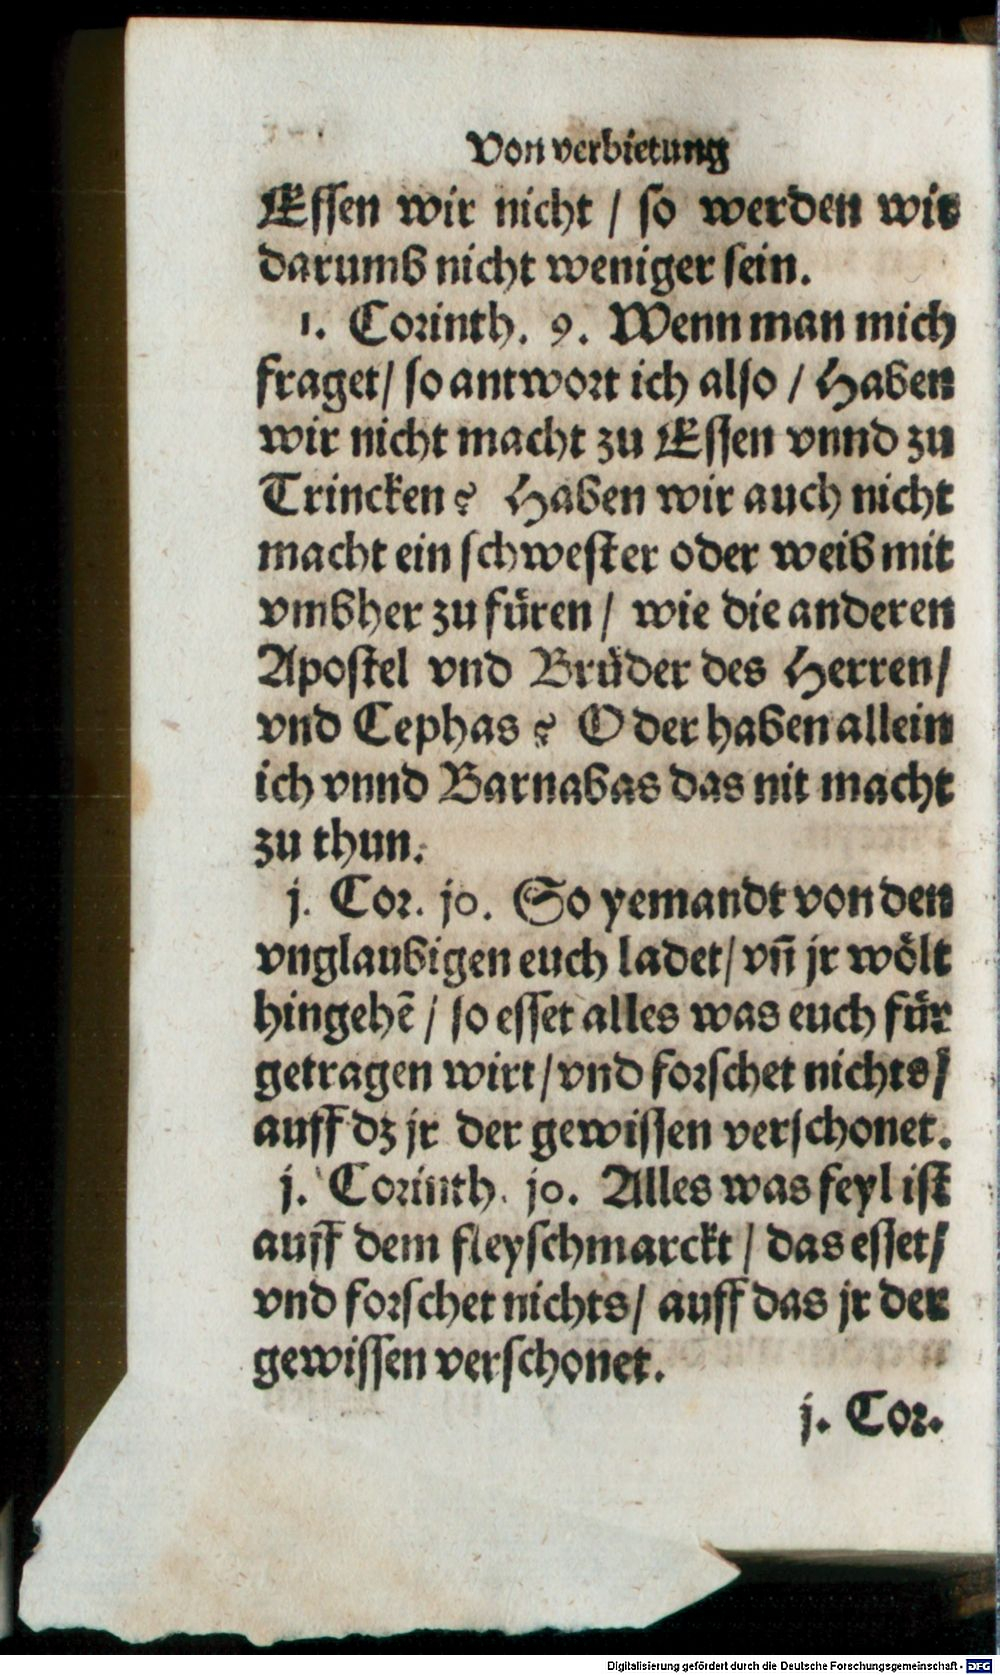 Von verbietung
Essen wir nicht / so werden wir
darumb nicht weniger sein.
1. Corinth. 9. Wenn man mich
fraget / so antwort ich also / Haben
wir nicht macht zu Essen vnnd zu
Trincken? Haben wir auch nicht
macht ein schwester oder weib mit
vmbher zu füren / wie die anderen
Apostel vnd Brüder des Herren /
vnd Cephas? Oder haben allein
ich vnnd Barnabas das nit macht
zu thun.
j. Cor. jo. So yemandt von den
vnglaubigen euch ladet / vn̄ jr wölt
hingehē / so esset alles was euch für
getragen wirt / vnd forschet nichts /
auff dz jr der gewissen verschonet.
j. Corinth. jo. Alles was feyl ist
auff dem fleyschmarckt / das esset /
vnd forschet nichts / auff das jr der
gewissen verschonet.
j. Cor.
Digitalisierung gefördert durch die Deutsche Forschungsgemeinschaft - DFG